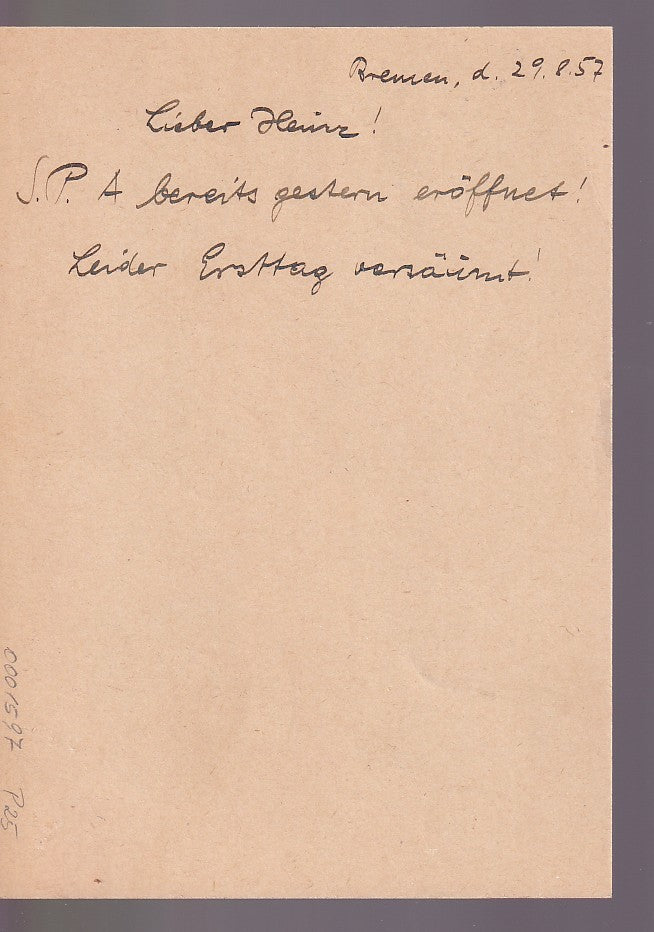 Bremen, d. 29.8.57
Lieber Heinz!
S.P. A bereits gestern eröffnet!
Leider Ersttag versäumt!
0001597 P25